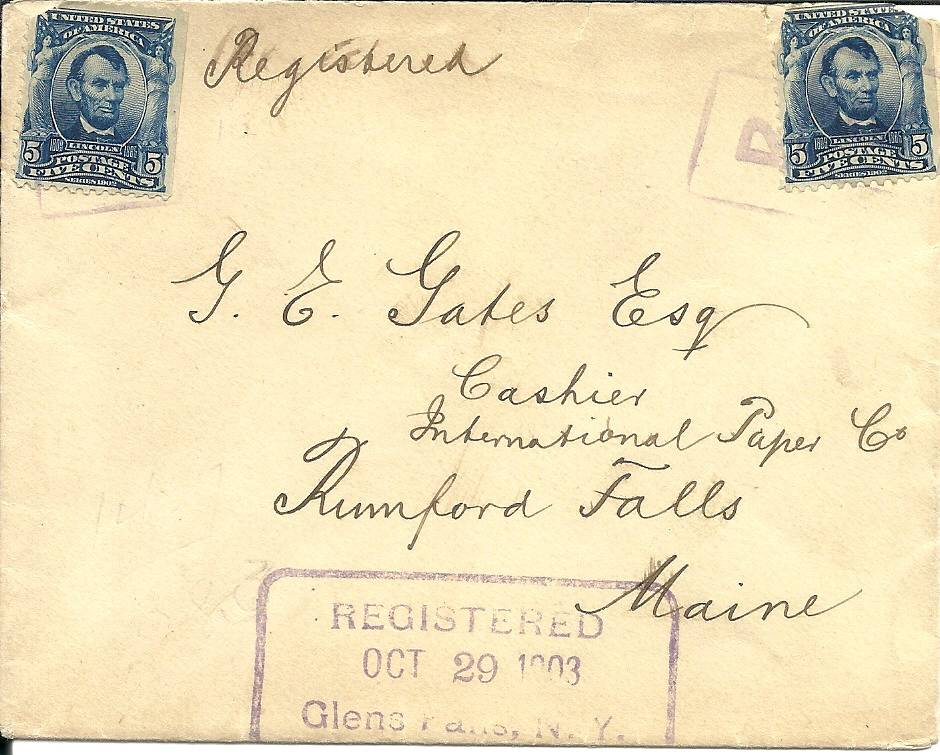 UNITED STATES
OF AMERICA
1809 LINCOLN 1865
5 POSTAGE 5
FIVE CENTS
SERIES 1902
Registered
UNITED STATES
OF AMERICA
1809 LINCOLN 1865
5 POSTAGE 5
FIVE CENTS
SERIES 1902
G. E. Gates Esq
Cashier
International Paper Co
Rumford Falls
Maine
REGISTERED
OCT 29 1903
Glens Falls, N. Y.